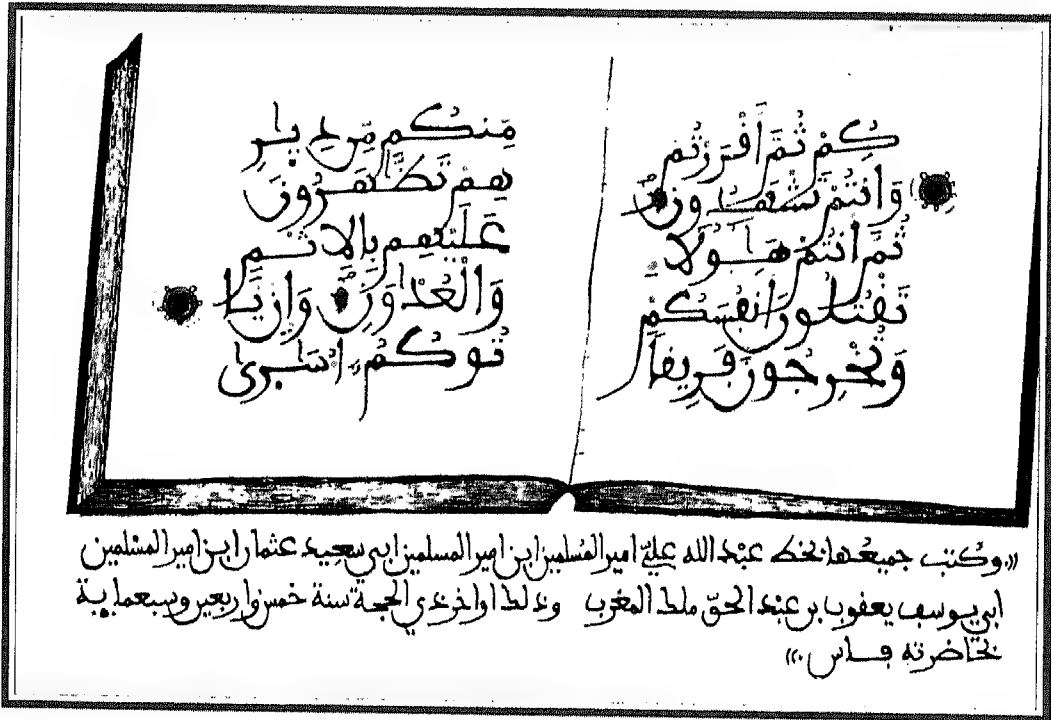 كُمْ ثُمَّ أَقْرَرْتُمْ
وَأَنتُمْ تَشْهَدُونَ
ثُمَّ أَنتُمْ هَٰؤُلَاءِ
تَقْتُلُونَ أَنفُسَكُمْ
وَتُخْرِجُونَ فَرِيقًا
مِّنكُم مِّن دِيَٰرِ
هِمْ تَظَّٰهَرُونَ
عَلَيْهِم بِالْإِثْمِ
وَالْعُدْوَٰنِ وَإِن يَا
تُوكُمْ أُسَٰرَىٰ
((وكتب جميعها بخط عبد الله عليّ امير المسلمين ابن امير المسلمين ابي سعيد عثمان ابن امير المسلمين
ابي يوسف يعقوب بن عبد الحقّ ملك المغرب وذلك اواخر ذي الحجة سنة خمس واربعين وسبعماية
بحاضرته فاس .))